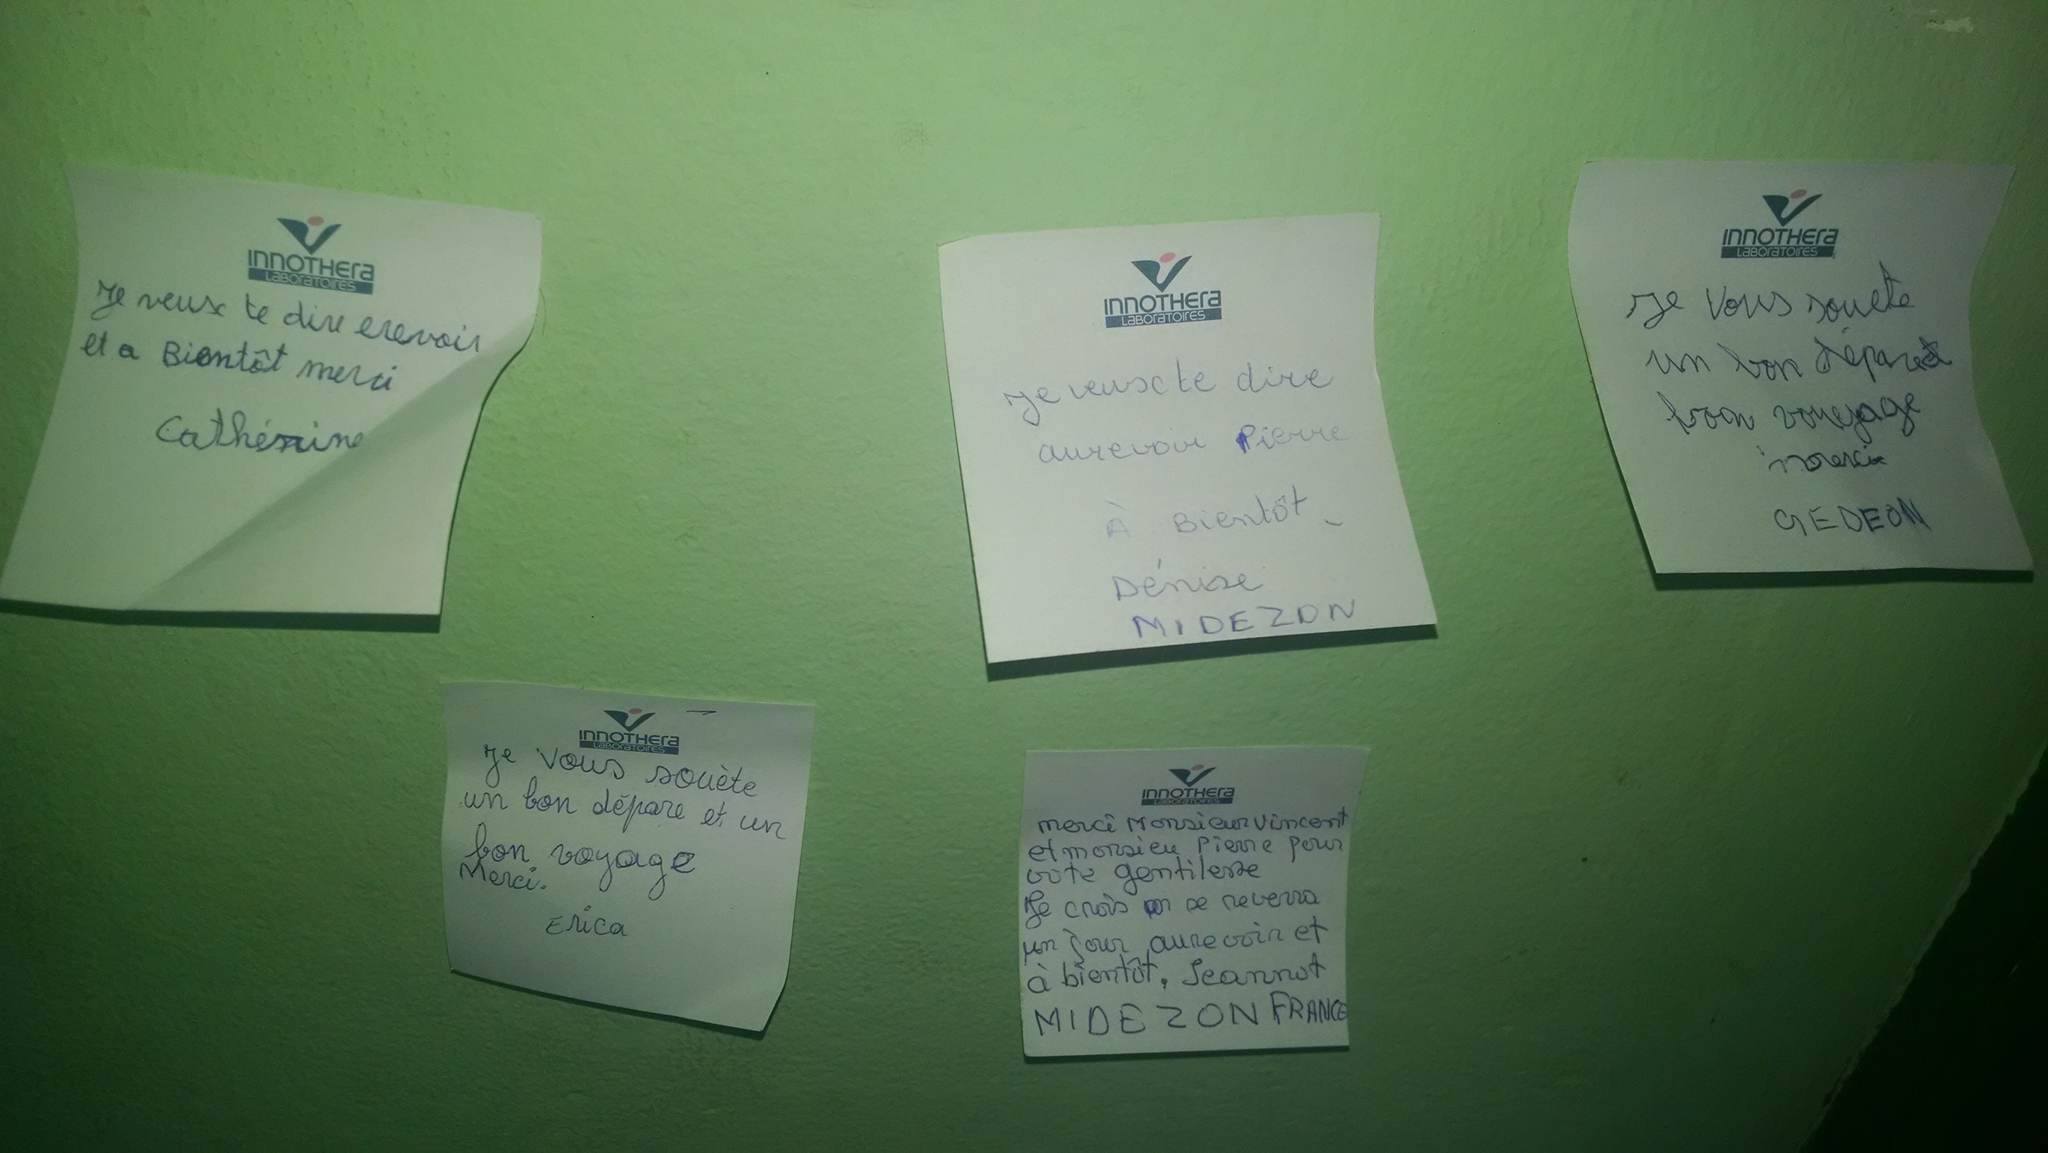 INNOTHERA
LABORATOIRES
Je veux te dire erevoir
et a Bientôt merci
Cathérine
INNOTHERA
LABORATOIRES
Je veux te dire
aurevoir Pierre
À Bientôt
Dénise
MIDEZON
INNOTHERA
LABORATOIRES
Je Vous souete
un bon dépare et
bon voueyage
merci
GEDEON
INNOTHERA
LABORATOIRES
Je Vous souète
un bon dépare et un
bon voyage
Merci.
Erica
INNOTHERA
LABORATOIRES
merci Monsieur Vincent
et monsieu Pierre pour
vote gentilesse
Je crois on se reverra
un jour, aurevoir et
à bientôt. Jeannot
MIDEZON FRANCE